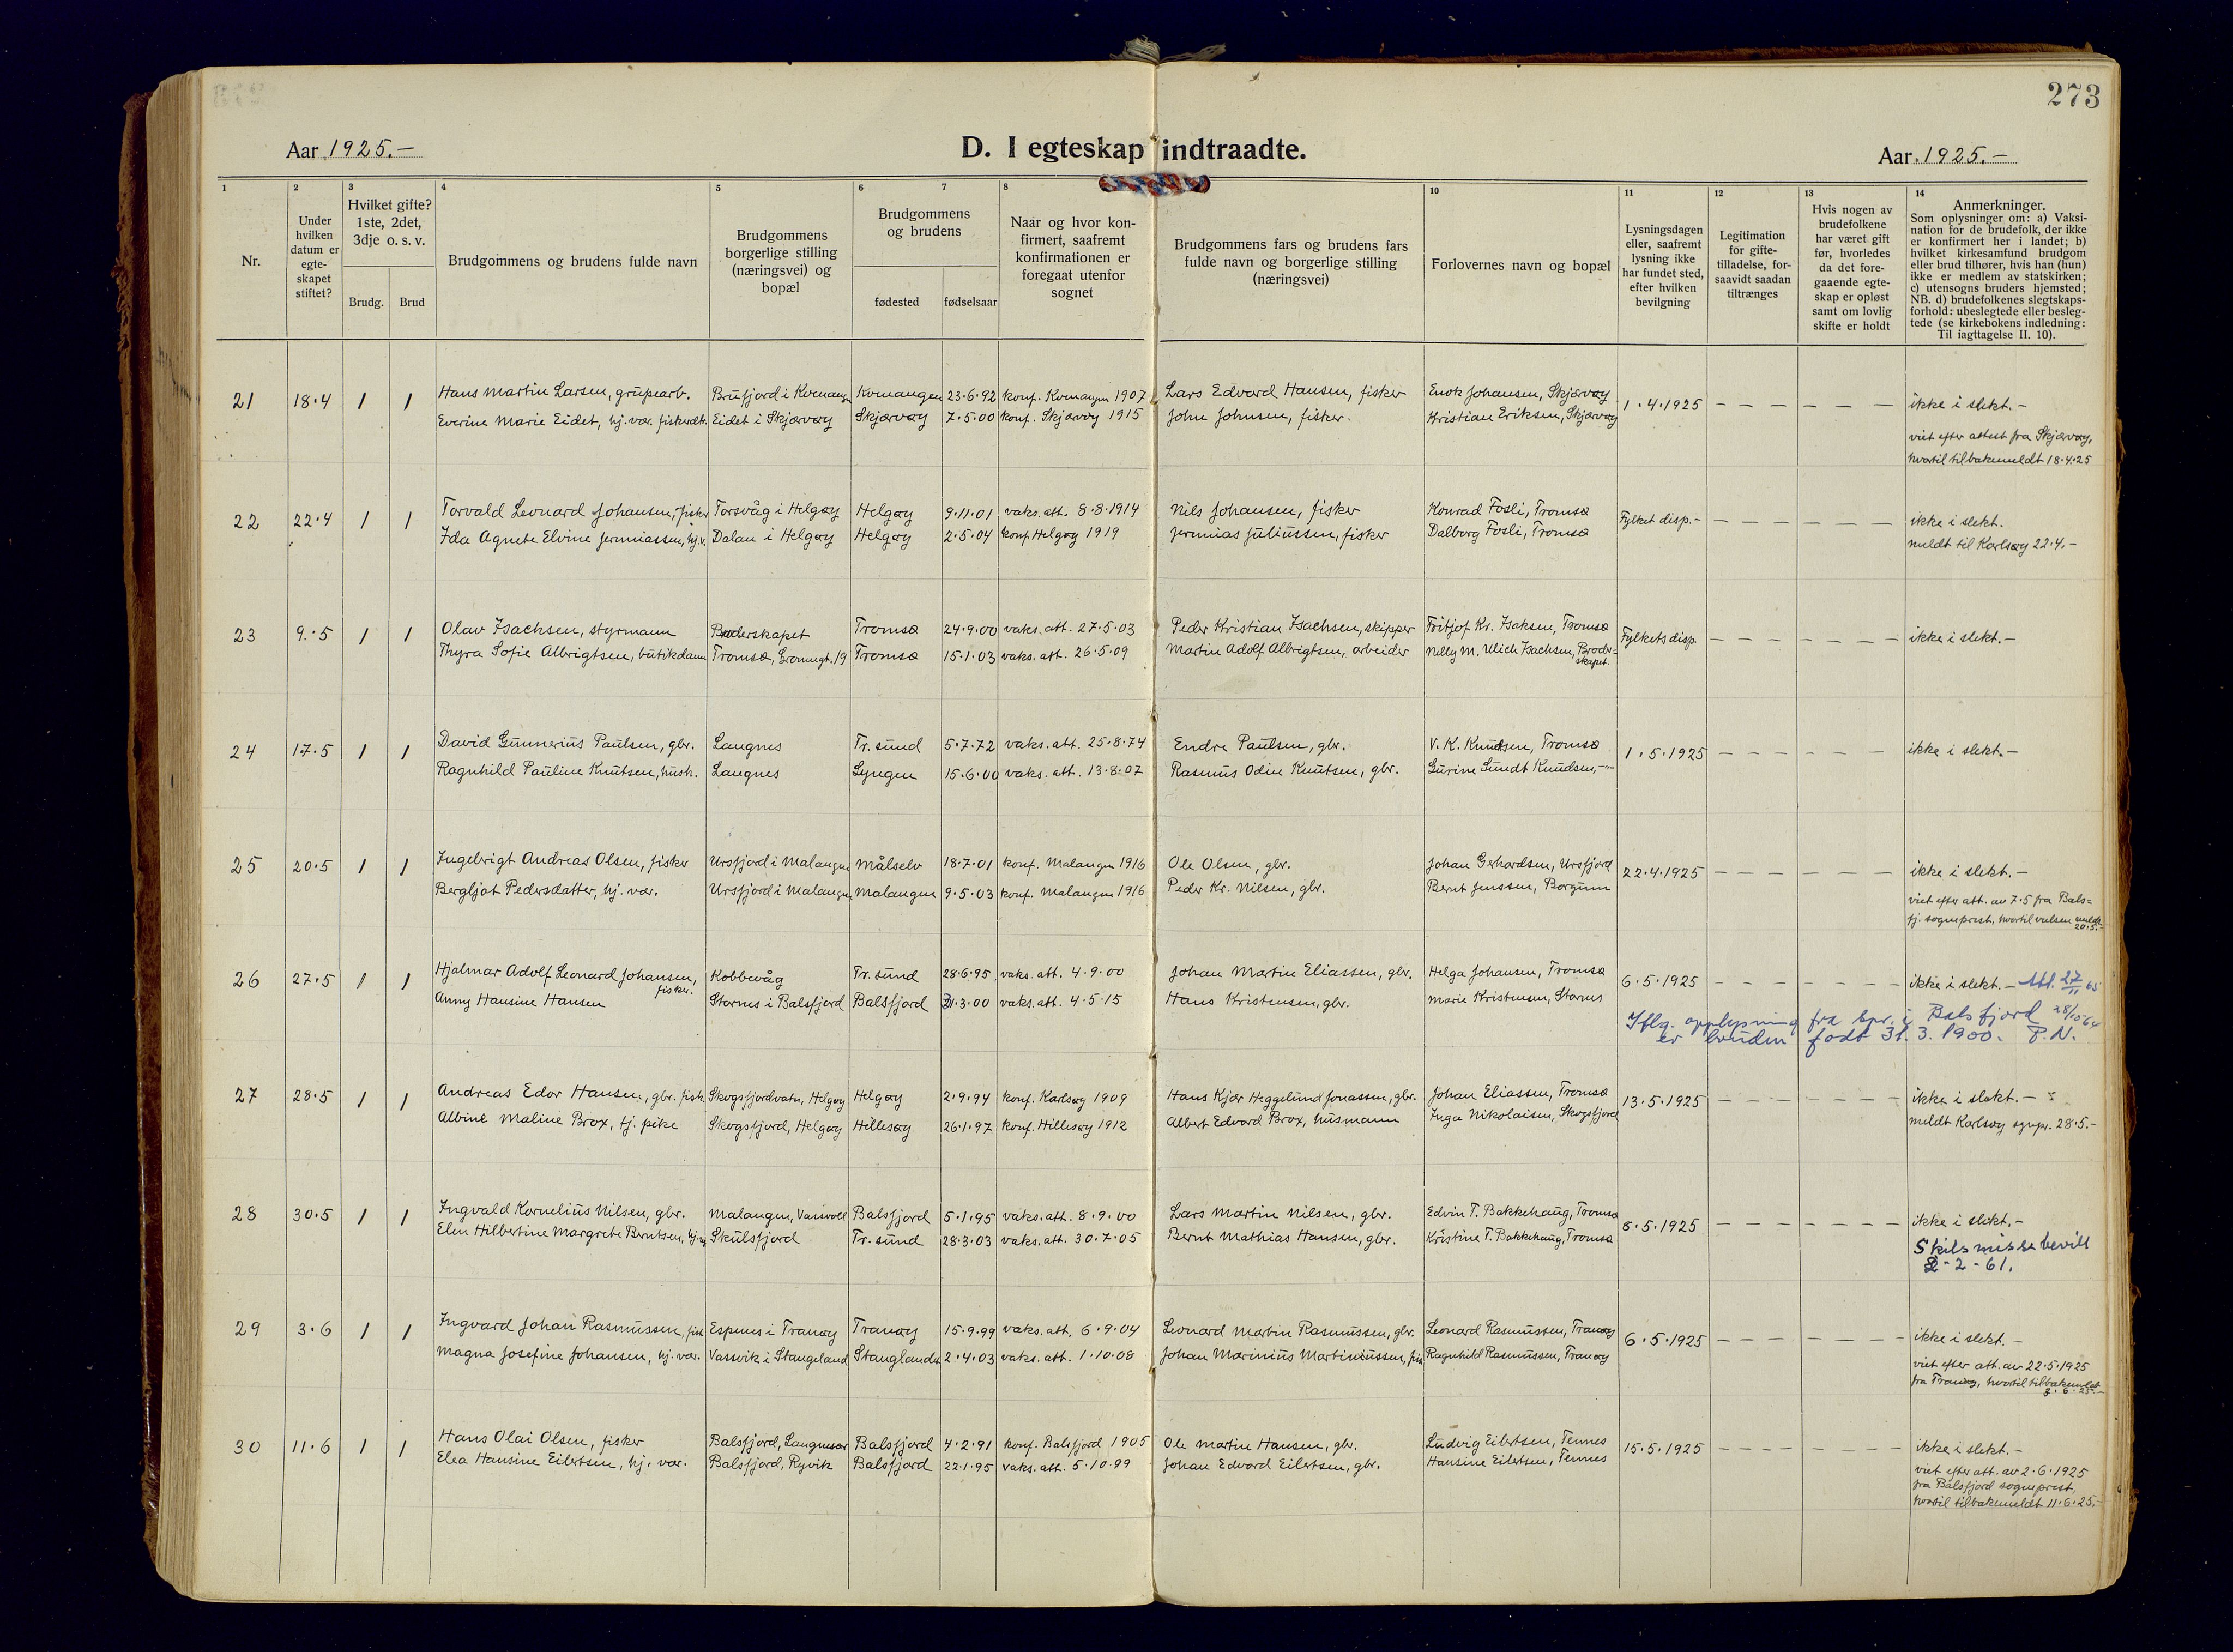 273
Aar 1925.-
D. I egteskap indtraadte.
Aar. 1925.-
1 2 3 4 5 6 7 8 10 11 12 13 14
Nr.
Under hvilken datum er egte-skapet stiftet?
Hvilket gifte? 1ste, 2det, 3dje o. s. v.
Brudg. Brud
Brudgommens og brudens fulde navn
Brudgommens borgerlige stilling (næringsvei) og bopæl
Brudgommens og brudens
fødested fødselsaar
Naar og hvor kon-firmert, saafremt konfirmationen er foregaat utenfor sognet
Brudgommens fars og brudens fars fulde navn og borgerlige stilling (næringsvei)
Forlovernes navn og bopæl
Lysningsdagen eller, saafremt lysning ikke har fundet sted, efter hvilken bevilgning
Legitimation for gifte-tilladelse, for-saavidt saadan tiltrænges
Hvis nogen av brudefolkene har været gift før, hvorledes da det fore-gaaende egte-skap er opløst samt om lovlig skifte er holdt
Anmerkninger.
Som oplysninger om: a) Vaksi-nation for de brudefolk, der ikke er konfirmert her i landet; b) hvilket kirkesamfund brudgom eller brud tilhører, hvis han (hun) ikke er medlem av statskirken; c) utensogns bruders hjemsted; NB. d) brudefolkenes slegtskaps-forhold: ubeslegtede eller besleg-tede (se kirkebokens indledning: Til iagttagelse II. 10).
21 18.4 1 1 Hans Martin Larsen, grupearb. Brufjord i Kvænangen Kvænangen 23.6.92 konf. Kvænangen 1907 Lars Edvard Hansen, fisker Enok Johansen, Skjærvøy 1.4.1925 ikke i slekt.-
Everine Marie Eidet, hj. vær. fiskerdtr. Eidet i Skjærvøy Skjærvøy 7.5.00 konf. Skjærvøy 1915 John Johnsen, fisker Kristian Eriksen, Skjærvøy
viet efter attest fra Skjærvøy,
hvortil tilbakemeldt 18.4.25
22 22.4 1 1 Torvald Leonard Johansen, fisker Torsvåg i Helgøy Helgøy 9.11.01 vaks. att. 8.8.1914 Nils Johansen, fisker Konrad Fosli, Tromsø Fylket disp.- ikke i slekt.
Ida Agnete Elvine Jermiassen, hj.v. Dalan i Helgøy Helgøy 2.5.04 konf Helgøy 1919 Jermias Juliussen, fisker Dalborg Fosli, Tromsø
meldt til Karlsøy 22.4.-
23 9.5 1 1 Olav Isachsen, styrmann Broderskapet Tromsø 24.9.00 vaks. att. 27.5.03 Peder Kristian Isachsen, skipper Fritjof Kr. Isaksen, Tromsø Fylkets disp. ikke i slekt.-
Thyra Sofie Albrigtsen, butikdame Tromsø, Grønnegt. 19 Tromsø 15.1.03 vaks. att. 26.5.09 Martin Adolf Albrigtsen, arbeider Nelly M. Ulich Isachsen, Broder-skapet.
24 17.5 1 1 David Gunnerius Paulsen, gbr. Langnes Tr. sund 5.7.72 vaks. att. 25.8.74 Endre Paulsen, gbr. V. K. Knudsen, Tromsø 1.5.1925 ikke i slekt.-
Ragnhild Pauline Knutsen, hush. Langnes Lyngen 15.6.00 vaks. att. 13.8.07 Rasmus Odin Knutsen, gbr. Gurine Sundt Knudsen, -"-
25 20.5 1 1 Ingebrigt Andreas Olsen, fisker Ursfjord i Malangen Målselv 18.7.01 konf. Malangen 1916 Ole Olsen, gbr. Johan Gerhardsen, Ursfjord 22.4.1925 ikke i slekt.-
Bergljot Pedersdatter, hj. vær. Ursfjord i Malangen Malangen 9.5.03 konf. Malangen 1916 Peder Kr. Nilsen, gbr. Bernt Jenssen, Borgunn
viet efter att. av 7.5 fra Bals-
fj. sogneprest, hvortil vielsen meldt 20.5.-
26 27.5 1 1 Hjalmar Adolf Leonard Johansen, fisker. Kobbevåg Tr. sund 28.6.95 vaks. att. 4.9.00 Johan Martin Eliassen, gbr. Helga Johansen, Tromsø 6.5.1925 ikke i slekt.- Att. 27/11 65
Anny Hansine Hansen Stornes i Balsfjord Balsfjord 31.3.00 vaks. att. 4.5.15 Hans Kristensen, gbr. Marie Kristensen, Stornes
Iflg. opplysning fra spr. i Balsfjord 28/10 64
er bruden født 31.3.1900. P.N.
27 28.5 1 1 Andreas Edor Hansen, gbr. fisk. Skogsfjordvatn, Helgøy Helgøy 2.9.94 konf. Karlsøy 1909 Hans Kjær Heggelund Jonassen, gbr. Johan Eliassen, Tromsø 13.5.1925 ikke i slekt.-
Albine Maline Brox, tj. pike Skogsfjord, Helgøy Hillesøy 26.1.97 konf. Hillesøy 1912 Albert Edvard Brox, husmann Inga Nikolaisen, Skogsfjord
meldt Karlsøy sognepr. 28.5.-
28 30.5 1 1 Ingvald Kornelius Nilsen, gbr. Malangen, Vassvoll Balsfjord 5.1.95 vaks. att. 8.9.00 Lars Martin Nilsen, gbr. Edvin T. Bakkehaug, Tromsø 8.5.1925 ikke i slekt.-
Elen Hilbertine Margrete Berntsen, Skulsfjord Tr. sund 28.3.03 vaks. att. 30.7.05 Bernt Mathias Hansen, gbr. Kristine T. Bakkehaug, Tromsø
Skilsmisse bevill
2-2-61.
29 3.6 1 1 Ingvard Johan Rasmussen, fisk Espenes i Tranøy Tranøy 15.9.99 vaks. att. 6.9.04 Leonard Martin Rasmussen, gbr. Leonard Rasmussen, Tranøy 6.5.1925 ikke i slekt.-
Magna Josefine Johansen, hj. vær. Vassvik i Stangeland Stanglandet 2.4.03 vaks. att. 1.10.08 Johan Marinius Martinussen, fisk Ragnhild Rasmussen, Tranøy
viet efter att. av 22.5.1925
fra Tranøy, hvortil tilbakemeldt
3.6.25.-
30 11.6 1 1 Hans Olai Olsen, fisker Balsfjord, Laugnesør Balsfjord 4.2.91 konf. Balsfjord 1905 Ole Martin Hansen, gbr. Ludvig Eilertsen, Tennes 15.5.1925 ikke i slekt.-
Elea Hansine Eilertsen, hj. vær. Balsfjord, Ryvik Balsfjord 22.1.95 vaks. att. 5.10.99 Johan Edvard Eilertsen, gbr. Hansine Eilertsen, Tennes
viet efter att. av 2.6.1925
fra Balsfjord sogneprest,
hvortil tilbakemeldt 11.6.25.-